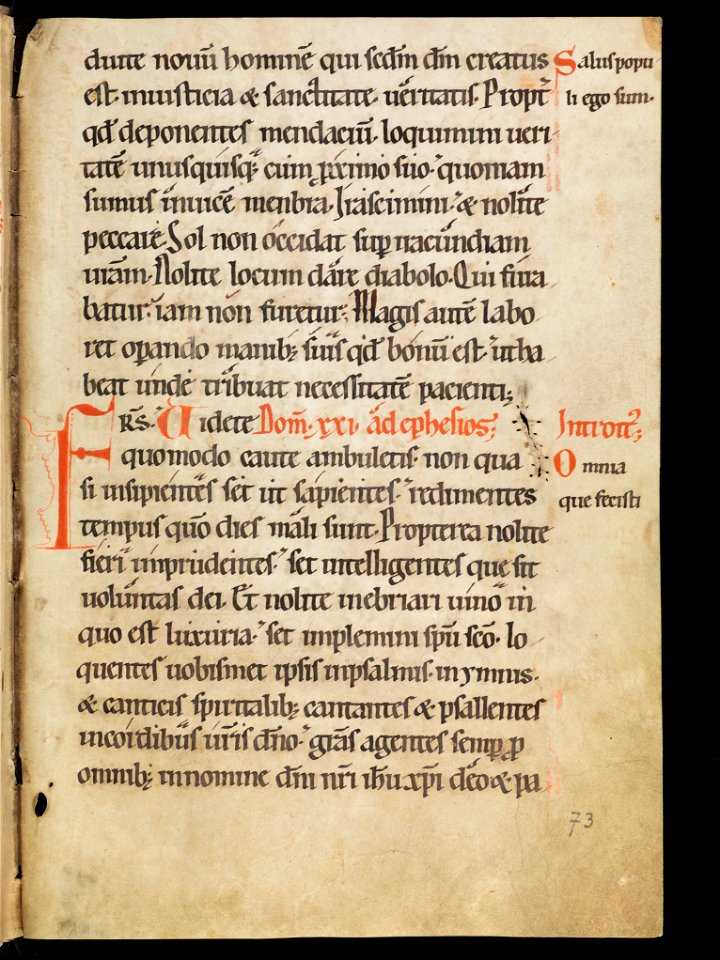 duite nouū hominē qui scdm̄ dm̄ creatus
Salus popu
est. iniusticia & sanctitate. ueritatis. Propt̄
li ego sum.
qd̄ deponentes mendaciū. loquimini ueri
tatē unusquisq; cum p̄ximo suo. quoniam
sumus inuicē menbra. Irascimini. & nolite
peccare. Sol non occidat sup̄ iracundiam
ur̄am. Nolite locum dare diabolo. Qui fura
batur. iam non furetur; Magis autē labo
ret op̄ando manib; suis qd̄ bonū est. ut ha
beat unde tribuat necessitatē pacienti;
FRS. Uidete Dom̄. xxi. ad ephesios;
Introit;
quomodo caute ambuletis. non qua
Omnia
si insipientes set ut sapientes. redimentes
que fecisti
tempus quō dies mali sunt. Propterea nolite
fieri inprudentes. set intelligentes que sit
uoluntas dei. Et nolite inebriari uino in
quo est luxuria. set implemini sp̄u sc̄o. lo
quentes uobismet ipsis inpsalmis. inymnis.
& canticis spiritalib; cantantes & psallentes
incordibus ur̄is dn̄o. gr̄as agentes semp̄ p̄
omnib; innomine dn̄i nr̄i ih̄u xp̄i deo & pa
73